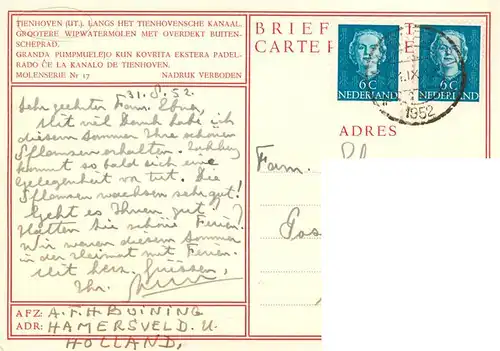 TIENHOVEN (UT.) LANGS HET TIENHOVENSCHE KANAAL.
GROOTERE WIPWATERMOLEN MET OVERDEKT BUITEN-
SCHEPRAD.
GRANDA PUMPMUELEJO KUN KOVRITA EKSTERA PADEL-
RADO ĈE LA KANALO DE TIENHOVEN.
MOLENSERIE Nr 17 NADRUK VERBODEN
31.8.52.
Sehr geehrter Fam.
Mit viel Dank habe ich
diesem Sommer Ihre schönen
Pflanzen erhalten.
kommt so bald sich eine
Gelegenheit vor tut. Die
Pflanzen wachsen sehr gut!
Geht es Ihnen gut?
Hatten Sie schöne Ferien.
Wir waren diesem Sommer
in der Heimat mit Ferien.
Mit herz. Grüssen,
Ihr.
AFZ: A.F.H BUINING
ADR: HAMERSVELD. U.
HOLLAND.
BRIEF
CARTE P
6C 6C
NEDERLAND NEDERLAND
IX
1952
ADRES
Fam.